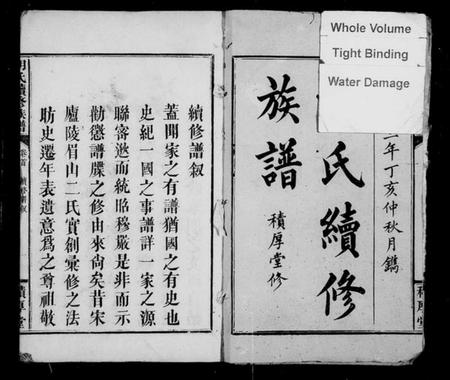 Whole Volume
Tight Binding
Water Damage
年丁亥仲秋月鐫
氏續修
族譜
積厚堂修
續修譜叙
蓋聞家之有譜猶國之有史也
史紀一國之事譜詳一家之源
聯寄遨而統昭穆嚴是非而示
勸懲譜牒之修由來尚矣昔宋
廬陵眉山二氏實創彙修之法
昉史遷年表遺意爲之尊祖敬
氏續修族譜
卷首
積厚堂
積厚堂